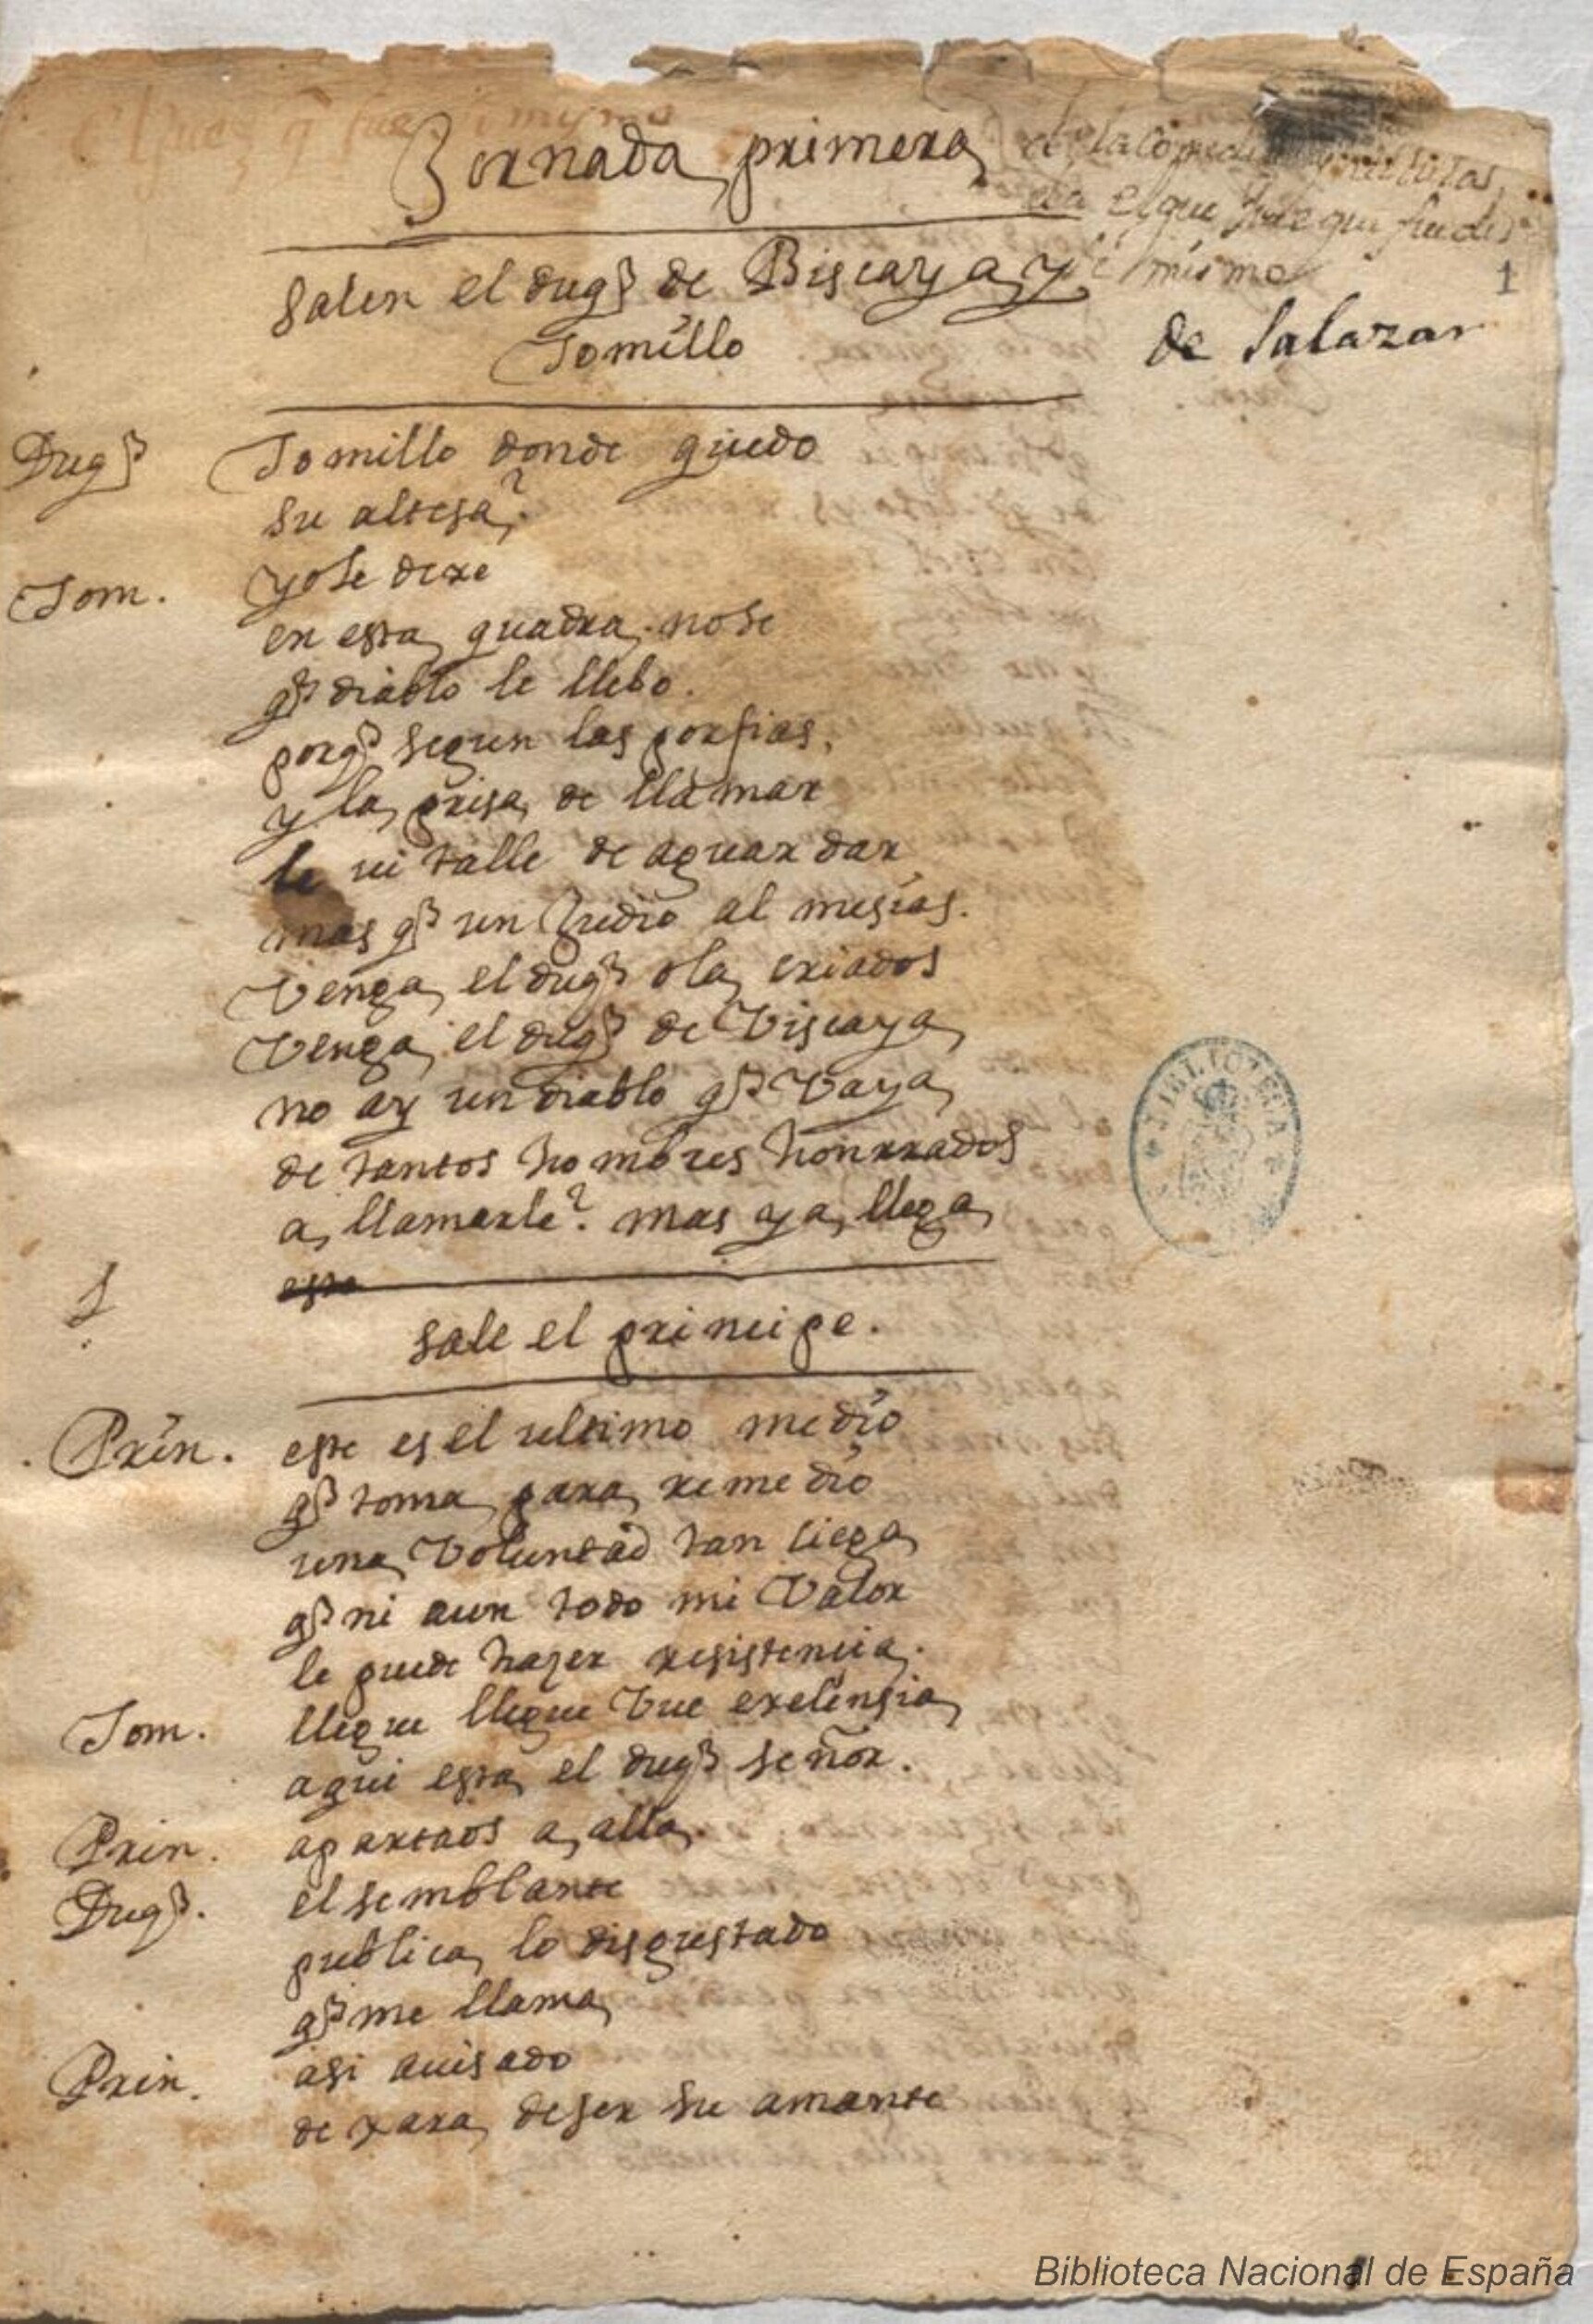 Jornada primera de la comedia
el que Juez que fue de si
mismo
1
de Salazar
Salen el duq̃ de Biscaya y
Tomillo
Duq̃ Tomillo donde quedo
su altesa?
Tom. yo le dexe
en esta quadra. no se
q̃ diablo le llebo.
porq̃ segun las porfias,
y la prisa de llamar
le vi talle de aguardar
mas q̃ un Judio al mesias.
Venga el duq̃ ola criados
Venga el duq̃ de Viscaya
no ay un diablo q̃ Vaya
de tantos hombres honrrados
a llamarle? mas ya llega
esta
1
sale el principe.
Prin. este es el ultimo medio
q̃ toma para remedio
una Voluntad tan ciega
q̃ ni aun todo mi Valor
le puede hazer resistencia.
Tom. llegue llegue Vue exelensia
aqui esta el duq̃ señor.
Prin. apartaos a alla.
Duq̃. el semblante
publica lo disgustado
q̃ me llama
Prin. asi auisado
dexara de ser su amante
BIBLIOTECA
Biblioteca Nacional de España